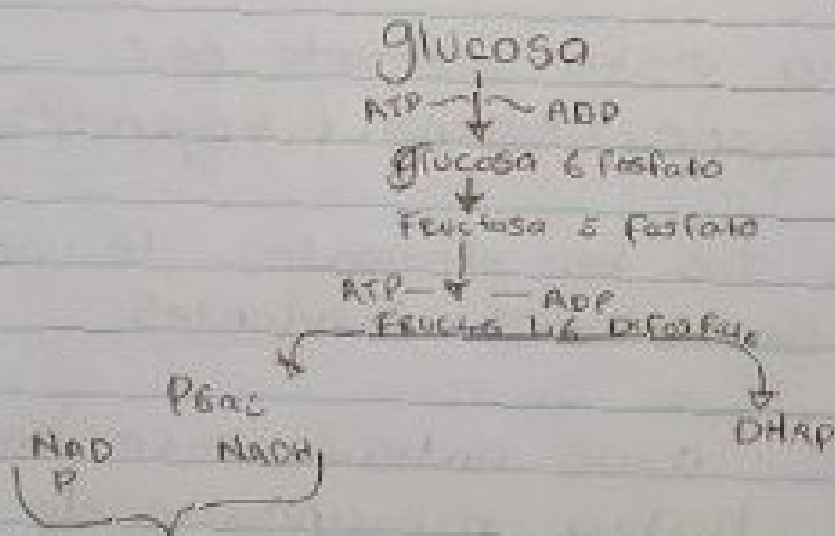 glucosa
ATP ADP
glucosa 6 fosfato
Fructosa 6 fosfato
ATP ADP
Fructo 1,6 Difosfato
PGAL
DHAP
NAD NADH
P